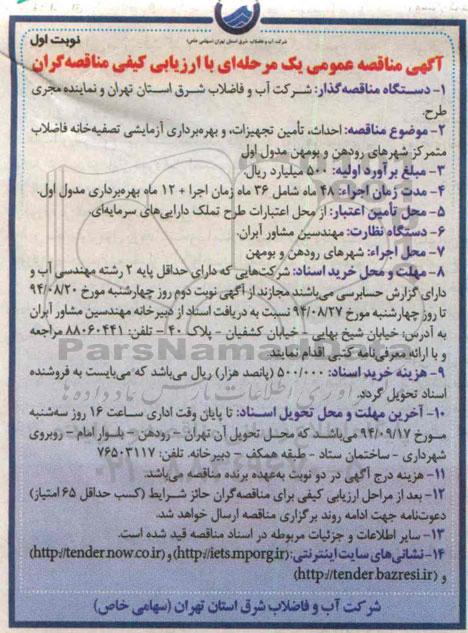 شرکت آب و فاضلاب شرق استان تهران (سهامی خاص)
نوبت اول
آگهی مناقصه عمومی یک مرحله‌ای با ارزیابی کیفی مناقصه‌گران
۱- دستگاه مناقصه‌گذار: شرکت آب و فاضلاب شرق استان تهران و نماینده مجری
طرح.
۲- موضوع مناقصه: احداث، تأمین تجهیزات، و بهره‌برداری آزمایشی تصفیه‌خانه فاضلاب
متمرکز شهرهای رودهن و بومهن مدول اول
۳- مبلغ برآورد اولیه: ۵۰۰ میلیارد ریال.
۴- مدت زمان اجراء: ۴۸ ماه شامل ۳۶ ماه زمان اجرا + ۱۲ ماه بهره‌برداری مدول اول.
۵- محل تأمین اعتبار: از محل اعتبارات طرح تملک دارایی‌های سرمایه‌ای.
۶- دستگاه نظارت: مهندسین مشاور آبران.
۷- محل اجراء: شهرهای رودهن و بومهن
۸- مهلت و محل خرید اسناد: شرکت‌هایی که دارای حداقل پایه ۲ رشته مهندسی آب و
دارای گزارش حسابرسی می‌باشند مجازند از آگهی نوبت دوم روز چهارشنبه مورخ ۹۴/۰۸/۲۰
تا روز چهارشنبه مورخ ۹۴/۰۸/۲۷ نسبت به دریافت اسناد از دبیرخانه مهندسین مشاور آبران
به آدرس: خیابان شیخ بهایی - خیابان کشفیان - پلاک ۴۰ - تلفن: ۸۸۰۶۰۴۴۱ مراجعه
و با ارائه معرفی‌نامه کتبی اقدام نمایند.
۹- هزینه خرید اسناد: ۵۰۰/۰۰۰ (پانصد هزار) ریال می‌باشد که می‌بایست به فروشنده
اسناد تحویل گردد.
۱۰- آخرین مهلت و محل تحویل اسناد: تا پایان وقت اداری ساعت ۱۶ روز سه‌شنبه
مورخ ۹۴/۰۹/۱۷ می‌باشد که محل تحویل آن تهران - رودهن - بلوار امام - روبروی
شهرداری - ساختمان ستاد - طبقه همکف - دبیرخانه. تلفن: ۷۶۵۰۳۱۱۷
۱۱- هزینه درج آگهی در دو نوبت به‌عهده برنده مناقصه می‌باشد.
۱۲- بعد از مراحل ارزیابی کیفی برای مناقصه‌گران حائز شرایط (کسب حداقل ۶۵ امتیاز)
دعوت‌نامه جهت ادامه روند برگزاری مناقصه ارسال خواهد شد.
۱۳- سایر اطلاعات و جزئیات مربوطه در اسناد مناقصه قید شده است.
۱۴- نشانی‌های سایت اینترنتی: (http://iets.mporg.ir) و (http://tender.now.co.ir)
و (http://tender.bazresi.ir)
شرکت آب و فاضلاب شرق استان تهران (سهامی خاص)
ParsNamadData